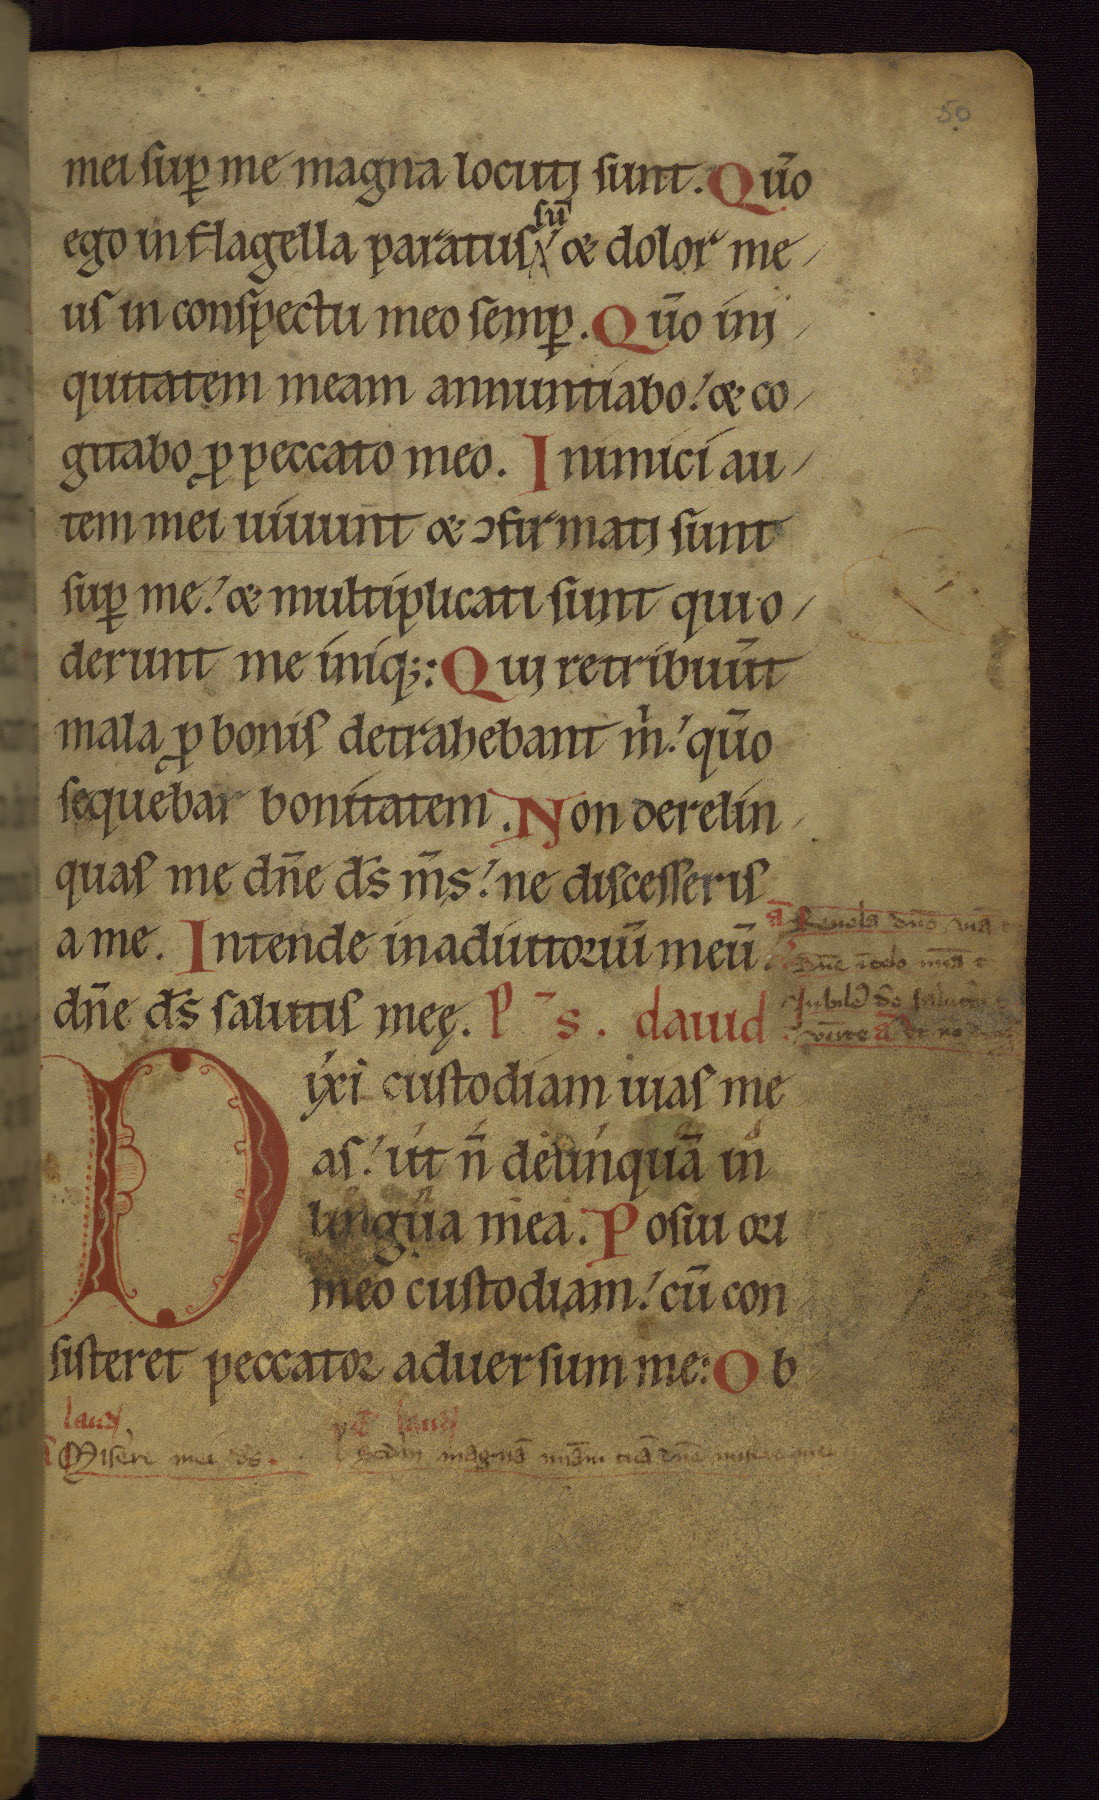 50
mei sup me magna locuti sunt. Qūo
ego in flagella paratus sū & dolor me
us in conspectu meo semp. Qūo ini
quitatem meam annuntiabo: & co
gitabo p peccato meo. Inimici au
tem mei uiuunt & ↄfirmati sunt
sup me: & multiplicati sunt qui o
derunt me iniq;: Qui retribuūt
mala p bonis detrahebant m̄: qūo
sequebar bonitatem. Non derelin
quas me dn̄e ds̄ ms̄: ne discesseris
a me. Intende in adiutoriū meū
ā Reuela dn̄o uiā
dn̄e ds̄ salutis meę. Ps̄. dauid
Iubilē dō salutari
uenite ā
Dixi custodiam uias me
as: ut n̄ delinquā in
lingua mea. Posui ori
meo custodiam: cū con
sisteret peccator aduersum me: Ob
laud
Misere mei ds̄.
Scdm magnā miām tuā